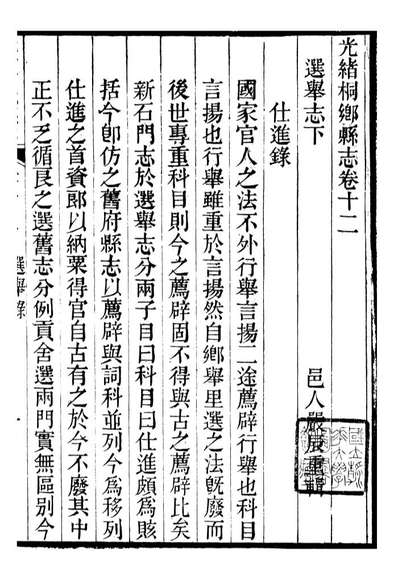 光緒桐鄉縣志卷十二
邑人嚴辰重輯
選舉志下
仕進錄
國家官人之法不外行舉言揚二途薦辟行舉也科目
言揚也行舉雖重於言揚然自鄉舉里選之法旣廢而
後世專重科目則今之薦辟固不得與古之薦辟比矣
新石門志於選舉志分兩子目曰科目曰仕進頗爲賅
括今卽仿之舊府縣志以薦辟與詞科並列今爲移列
仕進之首資郎以納粟得官自古有之於今不廢其中
正不乏循良之選舊志分例貢舍選兩門實無區别今
選舉錄